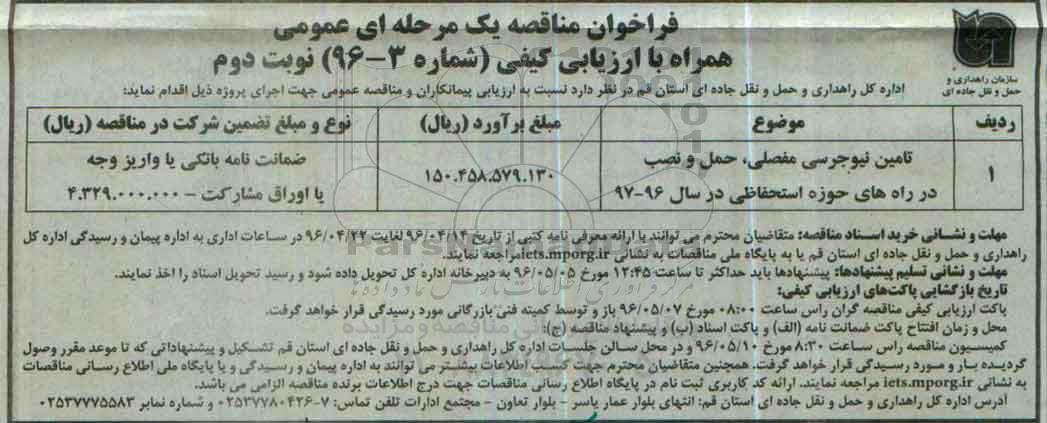 فراخوان مناقصه یک مرحله ای عمومی
همراه با ارزیابی کیفی (شماره ۳-۹۶) نوبت دوم
سازمان راهداری و
حمل و نقل جاده ای
اداره کل راهداری و حمل و نقل جاده ای استان قم در نظر دارد نسبت به ارزیابی پیمانکاران و مناقصه عمومی جهت اجرای پروژه ذیل اقدام نماید:
ردیف موضوع مبلغ برآورد (ریال) نوع و مبلغ تضمین شرکت در مناقصه (ریال)
۱ تامین نیوجرسی مفصلی، حمل و نصب ۱۵۰.۴۵۸.۵۷۹.۱۳۰ ضمانت نامه بانکی یا واریز وجه
در راه های حوزه استحفاظی در سال ۹۶-۹۷ یا اوراق مشارکت – ۴.۳۲۹.۰۰۰.۰۰۰
مهلت و نشانی خرید اسناد مناقصه: متقاضیان محترم می توانند با ارائه معرفی نامه کتبی از تاریخ ۹۶/۰۴/۱۴ لغایت ۹۶/۰۴/۲۲ در ساعات اداری به اداره پیمان و رسیدگی اداره کل
راهداری و حمل و نقل جاده ای استان قم یا به پایگاه ملی مناقصات به نشانی iets.mporg.ir مراجعه نمایند.
مهلت و نشانی تسلیم پیشنهادها: پیشنهادها باید حداکثر تا ساعت ۱۲:۴۵ مورخ ۹۶/۰۵/۰۵ به دبیرخانه اداره کل تحویل داده شود و رسید تحویل اسناد را اخذ نمایند.
تاریخ بازگشایی پاکت‌های ارزیابی کیفی:
پاکت ارزیابی کیفی مناقصه گران راس ساعت ۰۸:۰۰ مورخ ۹۶/۰۵/۰۷ باز و توسط کمیته فنی بازرگانی مورد رسیدگی قرار خواهد گرفت.
محل و زمان افتتاح پاکت ضمانت نامه (الف) و پاکت اسناد (ب) و پیشنهاد مناقصه (ج):
کمیسیون مناقصه راس ساعت ۸:۳۰ مورخ ۹۶/۰۵/۱۰ و در محل سالن جلسات اداره کل راهداری و حمل و نقل جاده ای استان قم تشکیل و پیشنهاداتی که تا موعد مقرر وصول
گردیده باز و مورد رسیدگی قرار خواهد گرفت. همچنین متقاضیان محترم جهت کسب اطلاعات بیشتر می توانند به اداره پیمان و رسیدگی و یا پایگاه ملی اطلاع رسانی مناقصات
به نشانی iets.mporg.ir مراجعه نمایند. ارائه کد کاربری ثبت نام در پایگاه اطلاع رسانی مناقصات جهت درج اطلاعات برنده مناقصه الزامی می باشد.
آدرس اداره کل راهداری و حمل و نقل جاده ای استان قم: انتهای بلوار عمار یاسر - بلوار تعاون - مجتمع ادارات تلفن تماس: ۷-۰۲۵۳۷۷۸۰۴۲۶ و شماره نمابر ۰۲۵۳۷۷۷۵۵۸۳